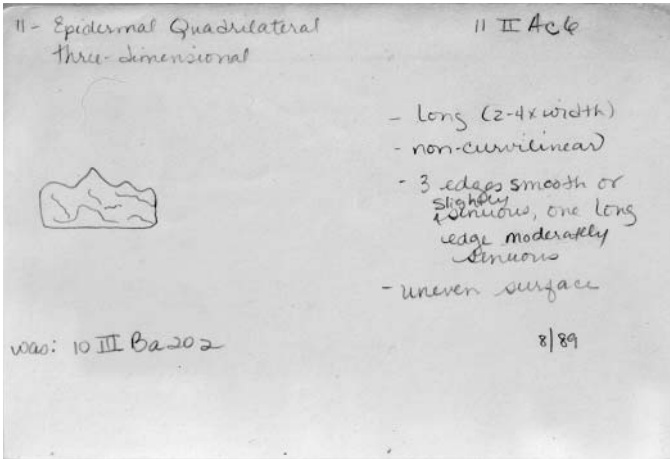 11 - Epidermal Quadrilateral
three-dimensional
11 II Ac6
- long (2-4x width)
- non-curvilinear
- 3 edges smooth or
slightly
sinuous, one long
edge moderately
sinuous
- uneven surface
was: 10 III Ba202
8/89